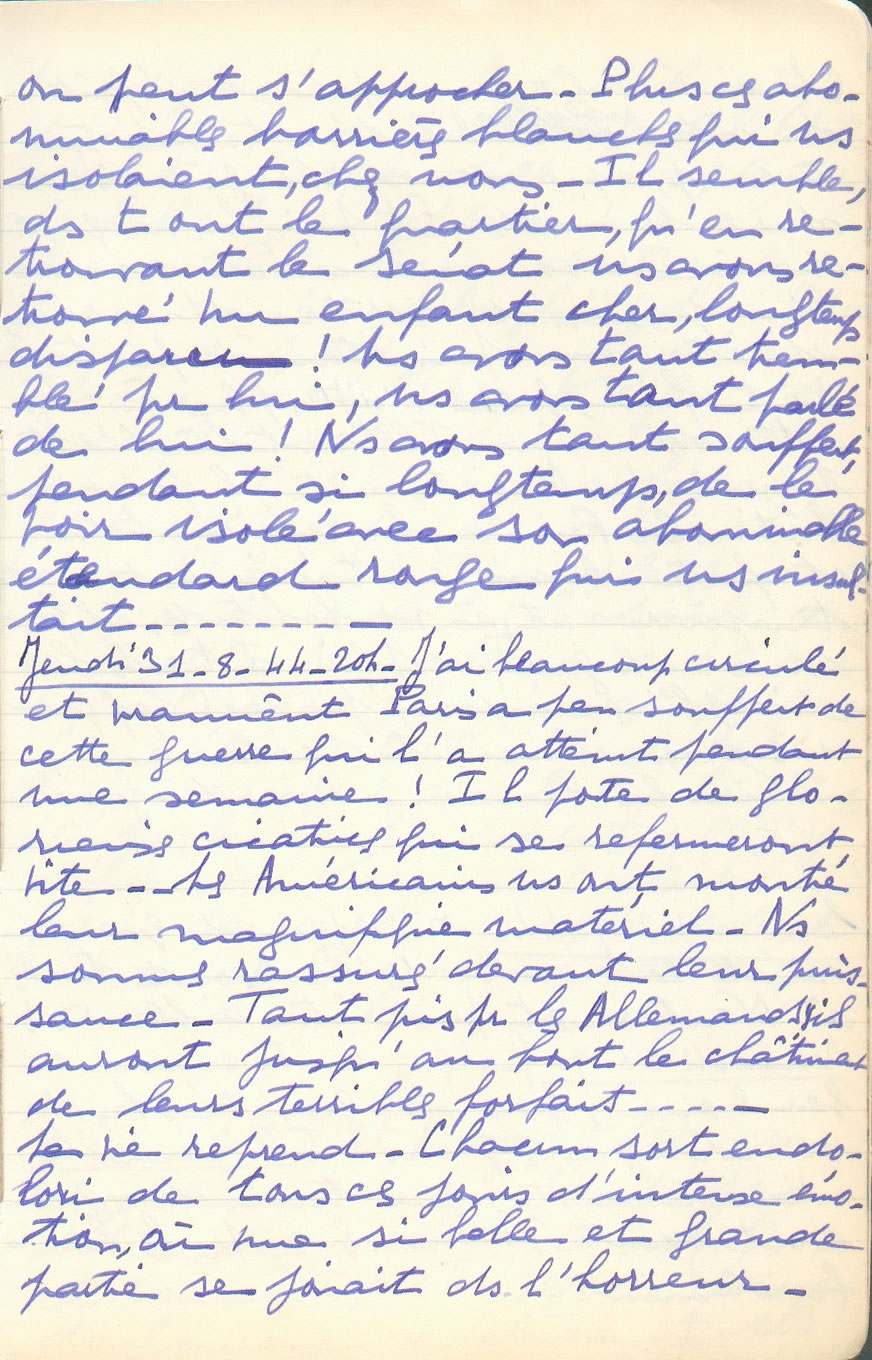 on peut s'approcher - Plus cs abo-
minabls barrièrs blanchs qui ns
isolaient, chez nous - Il semble,
ds tout le quartier, qu'en re-
trouvant le sénat ns avons re-
trouvé un enfant cher, longtemps
disparu ! Ns avons tant trem-
blé pr lui, ns avons tant parlé
de lui ! Ns avons tant souffert,
pendant si longtemps, de le
voir isolé avec son abominable
étendard rouge qui ns insul-
tait --------
Jeudi 31-8-44-20h- J'ai beaucoup circulé
et vraiment Paris a peu souffert de
cette guerre qui l'a atteint pendant
une semaine ! Il porte de glo-
rieuses cicatrices qui se refermeront
vite -- Ls Américains ns ont montré
leur magnifique matériel - Ns
sommes rassurés devant leur puis-
sance - Tant pis pr ls Allemands, ils
auront jusqu'au bout le châtiment
de leurs terribls forfaits -----
La vie reprend - Chacun sort endo-
lori de tous cs jours d'intense émo-
tion, où une si belle et grande
partie se jouait ds l'horreur -